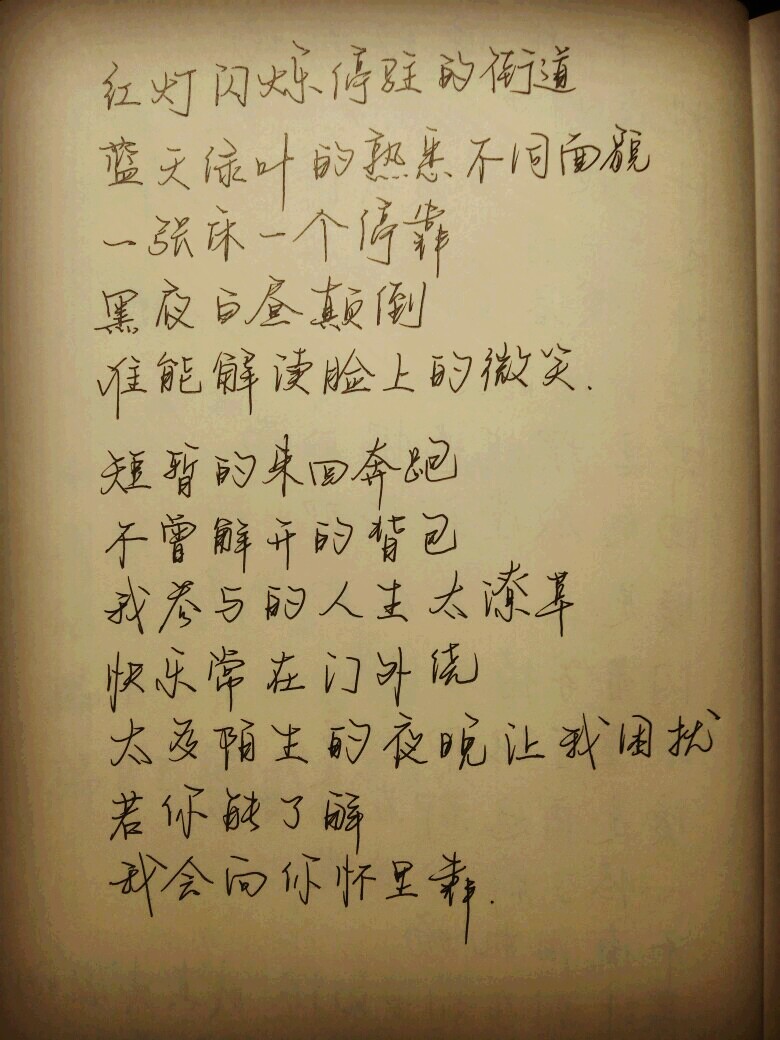 红灯闪烁停驻的街道
蓝天绿叶的熟悉不同面貌
一张床一个停靠
黑夜白昼颠倒
谁能解读脸上的微笑.
短暂的来回奔跑
不曾解开的背包
我参与的人生太潦草
快乐常在门外绕
太多陌生的夜晚让我困扰
若你能了解
我会向你怀里靠.